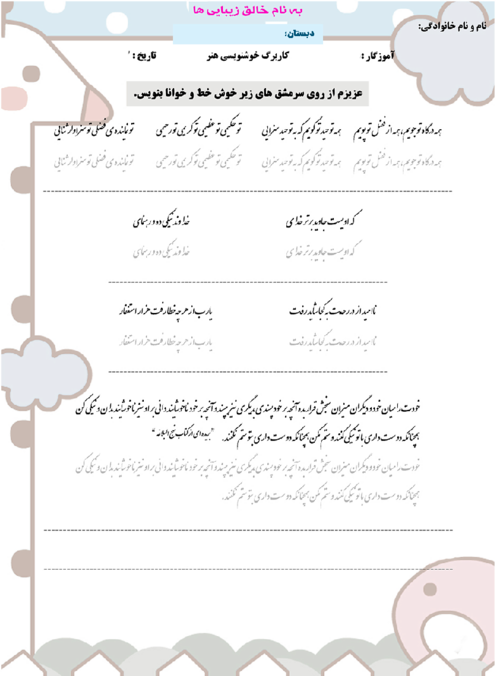 به نام خالق زیبایی ها
نام و نام خانوادگی:
دبستان:
آموزگار :
کاربرگ خوشنویسی هنر
تاریخ :
عزیزم از روی سرمشق های زیر خوش خط و خوانا بنویس.
همه درگاه تو جویم، همه از فضل تو پویم همه توحید تو گویم که به توحید سزایی تو حکیمی تو عظیمی تو کریمی تو رحیمی تو نماینده‌ی فضلی تو سزاوار ثنایی
همه درگاه تو جویم، همه از فضل تو پویم همه توحید تو گویم که به توحید سزایی تو حکیمی تو عظیمی تو کریمی تو رحیمی تو نماینده‌ی فضلی تو سزاوار ثنایی
که اویست جاوید برتر خدای خداوند نیکی ده و رهنمای
که اویست جاوید برتر خدای خداوند نیکی ده و رهنمای
ناامید از در رحمت به کجا شاید رفت یارب از هر چه خطا رفت هزار استغفار
ناامید از در رحمت به کجا شاید رفت یارب از هر چه خطا رفت هزار استغفار
خودت را میان خود و دیگران میزان سنجش قرار بده و آنچه بر خود پسندی به دیگری نیز بپسند و آنچه بر خود ناخوشایند دانی بر او نیز ناخوشایند بدان و نیکی کن
همچنانکه دوست داری با تو نیکی کنند و ستم مکن همچنانکه دوست داری بتو ستم نکنند. "گزیده‌ای از کتاب نهج البلاغه"
خودت را میان خود و دیگران میزان سنجش قرار بده و آنچه بر خود پسندی به دیگری نیز بپسند و آنچه بر خود ناخوشایند دانی بر او نیز ناخوشایند بدان و نیکی کن
همچنانکه دوست داری با تو نیکی کنند و ستم مکن همچنانکه دوست داری بتو ستم نکنند.